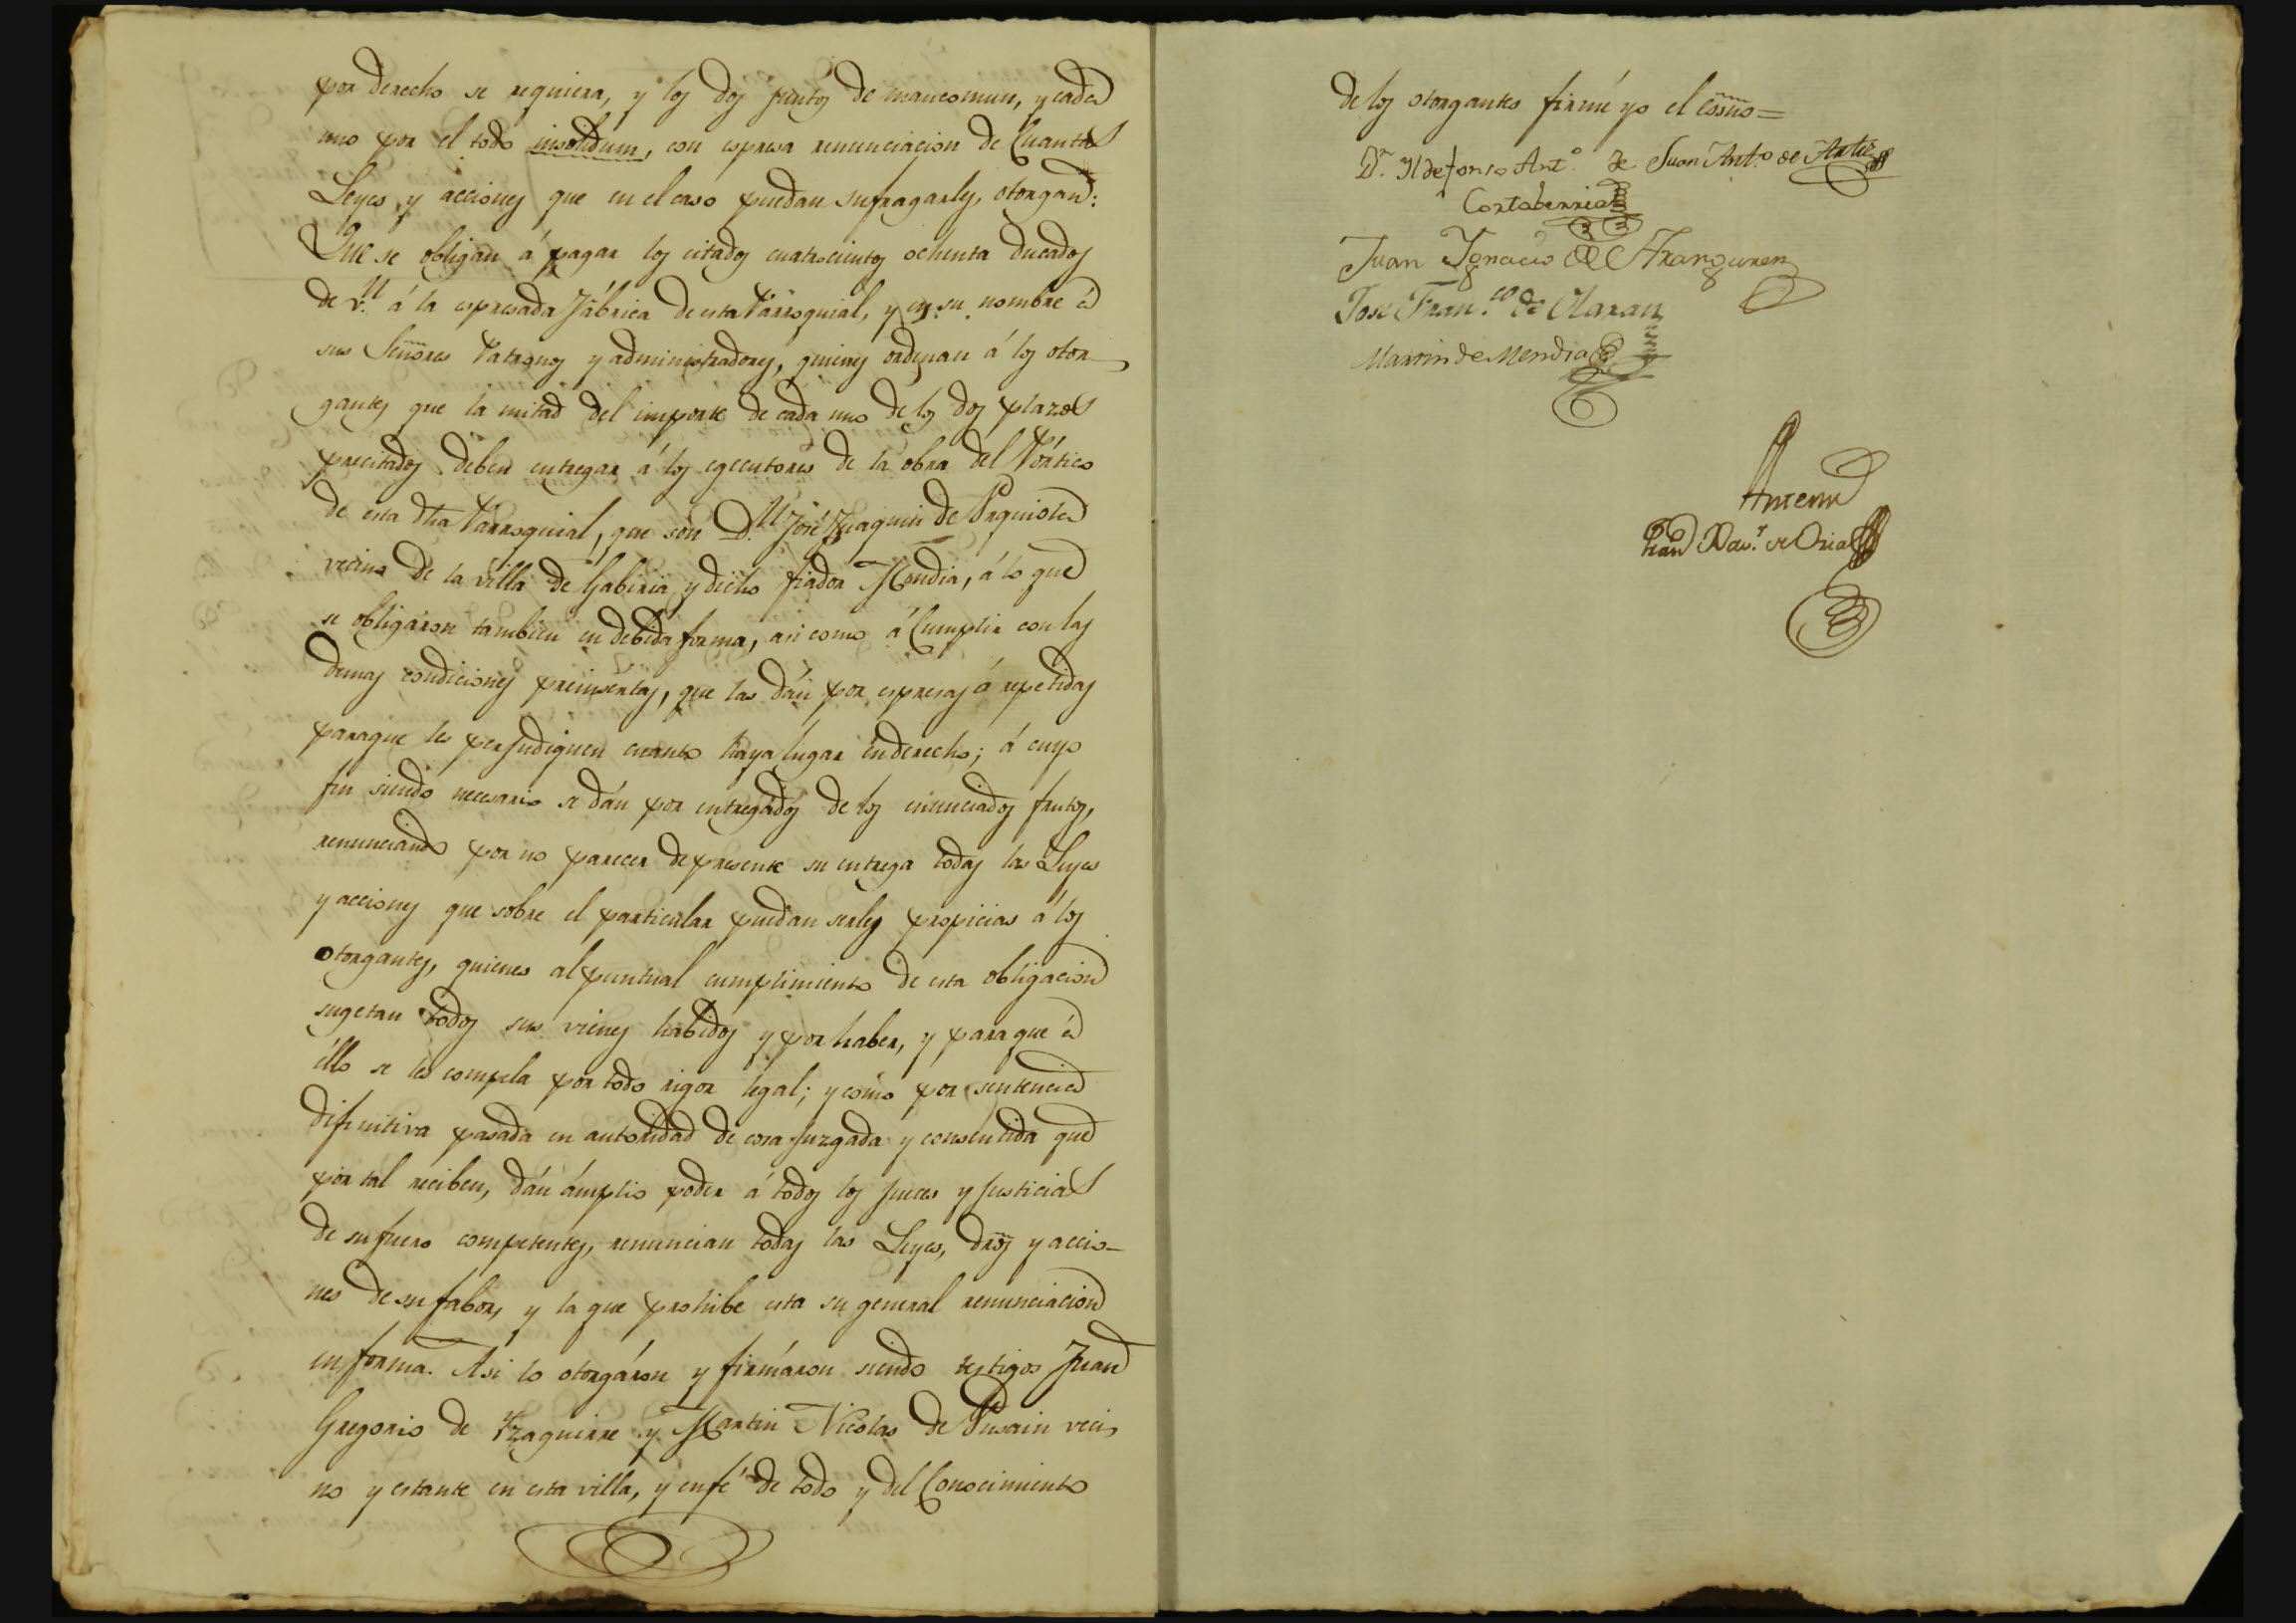 por derecho se requiera, y los dos juntos de mancomun, y cada
uno por el todo insolidum, con espresa renunciacion de Cuantas
Leyes y acciones que en el caso puedan sufragarles, otorgan:
Que se obligan á pagar los citados cuatrocientos ochenta ducados
de v.n á la espresada Fábrica de esta Parroquial, y en su nombre á
sus Señores Patronos y administradores, quienes ordenan á los otor
gantes que la mitad del importe de cada uno de los dos plazos
precitados deben entregar á los egecutores de la obra del Pórtico
de esta dha Parroquial, que són D.n José Juaquin de
vecino de la villa de Gabiria y dicho fiador Mendia, á lo que
se obligáron tambien en debida forma, asi como á Cumplir con las
demas condiciones preinsertas, que las dán por espresas ó repetidas
paraque les perjudiquen cuanto haya lugar en derecho; á cuyo
fin siendo necesario se dán por entregados de los enunciados frutos,
renunciando por no parecer de presente su entrega todas las Leyes
y acciones que sobre el particular puedan serles propicias á los
otorgantes, quienes al puntual cumplimiento de esta obligacion
sugetan todos sus vienes habidos y por haber, y para que á
éllo se les compela por todo rigor legal; y como por sentencia
difinitiva pasada en autoridad de cosa juzgada y consentida que
por tal reciben, dán ámplio poder á todos los jueces y justicias
de su fuero competentes, renuncian todas las Leyes, dros y accio-
nes de su fabor, y la que prohibe esta su general renunciacion
en forma. Asi lo otorgáron y firmáron siendo testigos Juan
Gregorio de Yzaguirre y Martin Nicolas de veci,
no y estante en esta villa, y en fé de todo y del Conocimiento
de los otorgantes firmé yo el essno=
D.n Ildefonso Ant.o de Juan Ant.o de
Cortaberria
Juan Ygnacio de Aranguren
Jose Fran.co de Olaran
Martin de Mendia
Antemi
Juan Bau.ta de Oria